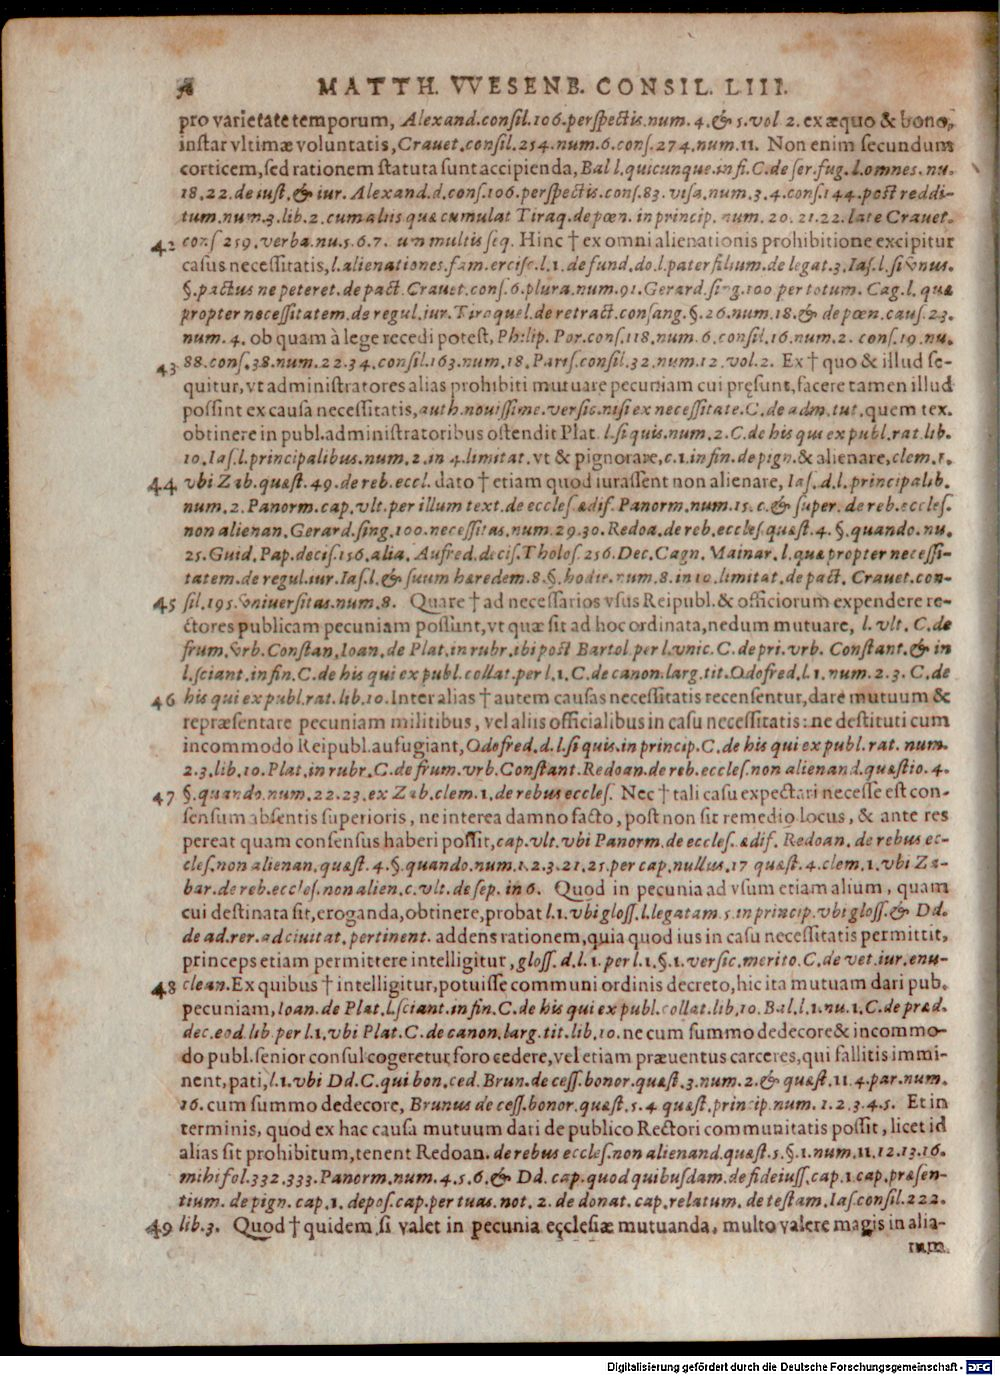 MATTH. VVESENB. CONSIL. LIII.
pro varietate temporum, Alexand. consil. 106. perspectis. num. 4. & 5. vol 2. ex æquo & bono,
instar vltimæ voluntatis, Crauet. consil. 254. num. 6. cons. 274. num. 11. Non enim secundum
corticem, sed rationem statuta sunt accipienda, Bal l. quicunque. in fi. C. de ser. fug. l. omnes. nu.
18. 22. de iust. & iur. Alexand. d. cons. 106. perspectis. cons. 83. visa. num. 3. 4. cons. 144. post reddi-
tum. num. 3. lib. 2. cum aliis quæ cumulat Tiraq. de pœn. in princip. num. 20. 21. 22. late Crauet.
42 cons 259. verba. nu. 5. 6. 7. cum multis seq. Hinc † ex omni alienationis prohibitione excipitur
casus necessitatis, l. alienationes. fam. ercisc. l. 1. de fund. do. l. pater filium. de legat. 3. Ias. l. si vnus.
§. pactus ne peteret. de pact. Crauet. cons. 6. plura. num. 91. Gerard. sing. 100 per totum. Cag. l. quæ
propter necessitatem. de regul. iur. Tiraquel. de retract. consang. §. 26. num. 18. & de pœn. caus. 23.
num. 4. ob quam à lege recedi potest, Philip. Por. cons. 118. num. 6. consil. 16. num. 2. cons. 19. nu.
43 88. cons. 38. num. 22. 34. consil. 163. num. 18. Paris. consil. 32. num. 12. vol. 2. Ex † quo & illud se-
quitur, vt administratores alias prohibiti mutuare pecuniam cui præsunt, facere tamen illud
possint ex causa necessitatis, auth. nouissime. versic. nisi ex necessitate. C. de adm. tut. quem tex.
obtinere in publ. administratoribus ostendit Plat. l. si quis. num. 2. C. de his qui ex publ. rat. lib.
10. Ias. l. principalibus. num. 2. in 4. limitat. vt & pignorare, c. 1. in fin. de pign. & alienare, clem. 1.
44 vbi Zab. quæst. 49. de reb. eccl. dato † etiam quod iurassent non alienare, Ias. d. l. principalib.
num. 2. Panorm. cap. vlt. per illum text. de eccles. ædif. Panorm. num. 15. c. & super. de reb. eccles.
non alienan. Gerard. sing. 100. necessitas. num. 29. 30. Redoa. de reb. eccles. quæst. 4. §. quando. nu.
25. Guid. Pap. decis. 156. alia. Aufred. decis. Tholos 256. Dec. Cagn. Mainar. l. quæ propter necessi-
tatem. de regul. iur. Ias. l. & suum hæredem. 8. §. hodie. num. 8. in 10. limitat. de pact. Crauet. con-
45 sil. 195. vniuersitas. num. 8. Quare † ad necessarios vsus Reipubl. & officiorum expendere re-
ctores publicam pecuniam possunt, vt quæ sit ad hoc ordinata, nedum mutuare, l. vlt. C. de
frum. vrb. Constan. Ioan. de Plat. in rubr. ibi post Bartol. per l. vnic. C. de pri. vrb. Constant. & in
l. sciant. in fin. C. de his qui ex publ. collat. per l. 1. C. de canon. larg. tit. Odofred. l. 1. num. 2. 3. C. de
46 his qui ex publ. rat. lib. 10. Inter alias † autem causas necessitatis recensentur, dare mutuum &
repræsentare pecuniam militibus, vel aliis officialibus in casu necessitatis: ne destituti cum
incommodo Reipubl. aufugiant, Odofred. d. l. si quis. in princip. C. de his qui ex publ. rat. num.
2. 3. lib. 10. Plat. in rubr. C. de frum. vrb. Constant. Redoan. de reb. eccles. non alienand. quæstio. 4.
47 §. quando. num. 22. 23. ex Zab. clem. 1. de rebus eccles. Nec † tali casu expectari necesse est con-
sensum absentis superioris, ne interea damno facto, post non sit remedio locus, & ante res
pereat quam consensus haberi possit, cap. vlt. vbi Panorm. de eccles. ædif. Redoan. de rebus ec-
cles. non alienan. quæst. 4. §. quando. num. 1. 2. 3. 21. 25. per cap. nullus. 17 quæst. 4. clem. 1. vbi Za-
bar. de reb. eccles. non alien. c. vlt. de sep. in 6. Quod in pecunia ad vsum etiam alium, quam
cui destinata sit, eroganda, obtinere, probat l. 1. vbi gloss. l. legatam. 5. in princip. vbi gloss. & Dd.
de ad. rer. ad ciuitat. pertinent. addens rationem, quia quod ius in casu necessitatis permittit,
princeps etiam permittere intelligitur, gloss. d. l. 1. per l. 1. §. 1. versic. merito. C. de vet. iur. enu-
48 clean. Ex quibus † intelligitur, potuisse communi ordinis decreto, hic ita mutuam dari pub.
pecuniam, Ioan. de Plat. l. sciant. in fin. C. de his qui ex publ. collat. lib. 10. Bal. l. 1. nu. 1. C. de præd.
dec. eod. lib per l. 1. vbi Plat. C. de canon. larg. tit. lib. 10. ne cum summo dedecore & incommo-
do publ. senior consul cogeretur foro cedere, vel etiam præuentus carceres, qui fallitis immi-
nent, pati, l. 1. vbi Dd. C. qui bon. ced. Brun. de cess. bonor. quæst. 3. num. 2. & quæst. 11. 4. par. num.
16. cum summo dedecore, Brunus de cess. bonor. quæst. 5. 4 quæst. princip. num. 1. 2. 3. 4. 5. Et in
terminis, quod ex hac causa mutuum dari de publico Rectori communitatis possit, licet id
alias sit prohibitum, tenent Redoan. de rebus eccles. non alienand. quæst. 5. §. 1. num. 11. 12. 13. 16.
mihi fol. 332. 333. Panorm. num. 4. 5. 6. & Dd. cap. quod quibusdam. de fideiuss. cap. 1. cap. præsen-
tium. de pign. cap. 1. depos. cap. per tuas. not. 2. de donat. cap. relatum. de testam. Ias consil. 222.
49 lib. 3. Quod † quidem si valet in pecunia ecclesiæ mutuanda, multo valere magis in alia-
rum
Digitalisierung gefördert durch die Deutsche Forschungsgemeinschaft - DFG